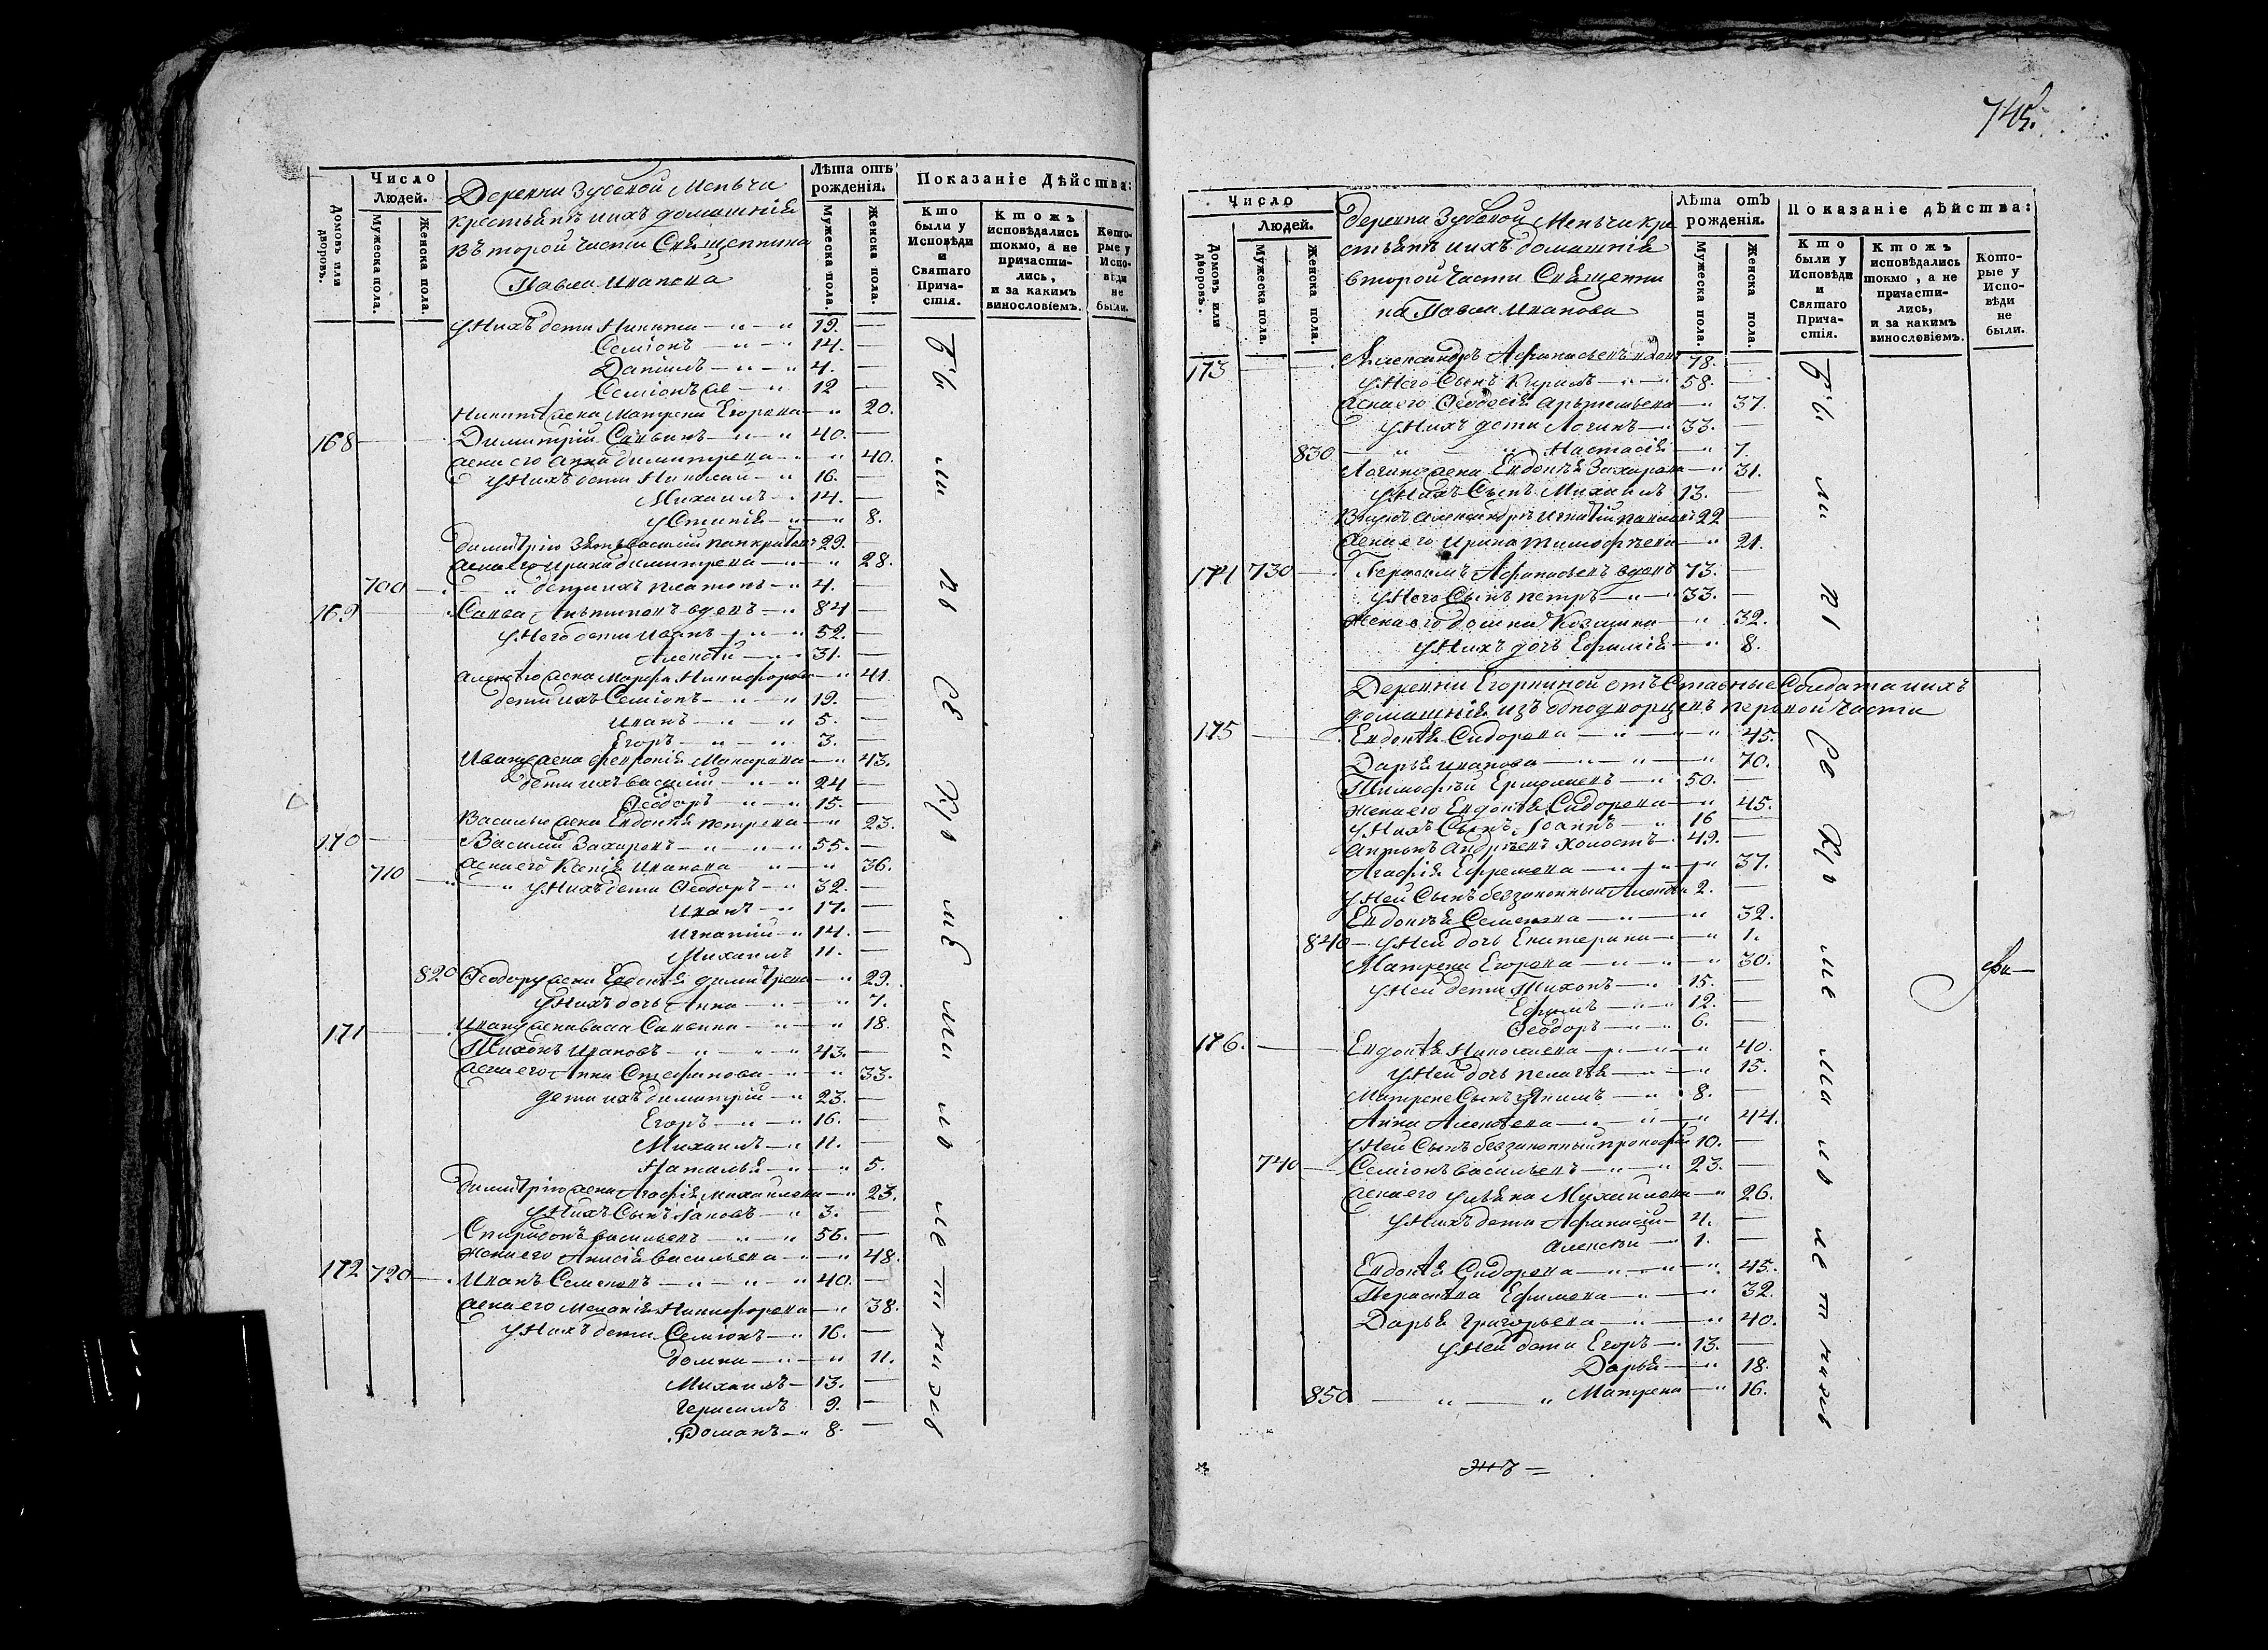 Число
Людей.
Домовъ или
дворовъ.
Мужеска пола.
Женска пола.
Деревни Зубовой Меньчи
крестьянъ ихъ домашнія
второй части Священника
Павла Иванова
Лѣта отъ
рожденія.
Мужеска пола.
Женска пола.
Показаніе Дѣйства:
Кто
были у
Исповѣди
и
Святаго
Прича-
стія.
Ктожъ
исповѣдались
токмо, а не
причасти-
лись,
и за какимъ
винословіемъ.
Кото-
рые у
Испо-
вѣди
не
были.
у Нихъ дети Никита 19. —
Семіонъ 14. —
Данилъ 4. —
Семіонъ 12 —
Никиты жена Матрена Егорова 20.
168 Димитрій Савинъ 40. —
жена его Анна Димитрева 40.
у Нихъ дети Николай 16. —
Михаилъ 14. —
Устинія 8.
Димитрію зять Василий Панкратовъ 29. —
жена его Ирина Димитрева 28.
700 дети ихъ Платонъ 4. —
169 Савва Антиповъ вдовъ 84 —
у Него дети Иванъ 52. —
Алексѣй 31. —
Алексѣю жена Марфа Никифорова 41.
дети ихъ Семіонъ 19. —
Иванъ 5. —
Егоръ 3. —
Ивану жена Февронія Макарова 43.
дети ихъ Василий 24 —
Феодоръ 15. —
Василью жена Евдокія Петрова 23.
170 Василий Захаровъ 55. —
710 жена его Ксенія Иванова 36.
у Нихъ дети Феодоръ 32. —
Иванъ 17. —
Игнатий 14. —
Михаилъ 11. —
820 Феодору жена Евдокія Димитрева 29.
у Нихъ дочь Анна 7.
Ивану жена Васса Савина 18.
171 Тихонъ Ивановъ 43. —
жена его Анна Стефанова 33.
дети ихъ Димитрій 23. —
Егоръ 16. —
Михаилъ 11. —
Наталья 5.
Димитрію жена Агафія Михайлова 23.
у Нихъ Сынъ Іаковъ 3. —
Спиридонъ Васильевъ 56. —
жена его Анисія Васильева 48.
172 720 Иванъ Семеновъ 40. —
жена его Меланія Никифорова 38.
у Нихъ дети Семіонъ 16. —
Домна 11.
Михаилъ 13. —
Герасимъ 9. —
Романъ 8. —
745.
Число
Людей.
Домовъ или
дворовъ.
Мужеска пола.
Женска пола.
Деревни Зубовой Меньчи кре
стьянъ ихъ домашнія
второй части Священни
ка Павла Иванова
Лѣта отъ
рожденія.
Мужеска пола.
Женска пола.
Показаніе дѣйства:
Кто
были у
Исповѣди
и
Святаго
Прича-
стія.
Ктожъ
исповѣдались
токмо, а не
причасти-
лись,
и за какимъ
винословіемъ.
Кото-
рые у
Испо-
вѣди
не
были.
173 Александръ Афанасьевъ вдовъ 78. —
у Него Сынъ Кирилъ 58. —
жена его Феодосія 37.
у Нихъ дети Логинъ 33. —
830 Настасія 7.
Логину жена Евдокія Захарова 31.
у Нихъ Сынъ Михаилъ 13. —
Внукъ Александръ Игнатий 22 —
жена его Ирина Тимофѣева 21.
174 730 Герасимъ Афанасьевъ вдовъ 73. —
у Него Сынъ Петръ 33. —
жена его Домна Козмина 32.
у Нихъ дочь Ефимія 8.
Деревни Егоркиной отъ Ставные Солдата ихъ
домашнія изъ однодворцевъ первой части
175 Евдокія Сидорова 45.
Дарья Иванова 70.
Тимофѣй Ермолаевъ 50. —
жена его Евдокія Сидорова 45.
у Нихъ Сынъ Іоаннъ 16 —
Антонъ Андрѣевъ Холостъ 49. —
Агафія Ефремова 37.
у Ней Сынъ беззаконный Алексѣй 2. —
Евдокія Семенова 32.
840 у Ней дочь Екатерина 1.
Матрена Егорова 30.
у Ней дети Тихонъ 15. —
Ефимъ 12. —
Феодоръ 6. —
176. Евдокія Николаева 40.
у Ней дочь Пелагѣя 15.
Матрене Сынъ Якимъ 8. —
Анна Алексѣева 44.
у Ней Сынъ беззаконный Прокофий 10. —
740 Семіонъ Васильевъ 23. —
жена его Ульяна Михаилова 26.
у Нихъ дети Афанасий 4. —
Алексѣй 1. —
Евдокія Сидорова 45.
Парасковья Ефимова 32.
Дарья Григорьева 40.
у Ней дети Егоръ 13. —
Дарья 18.
850 Матрена 16.